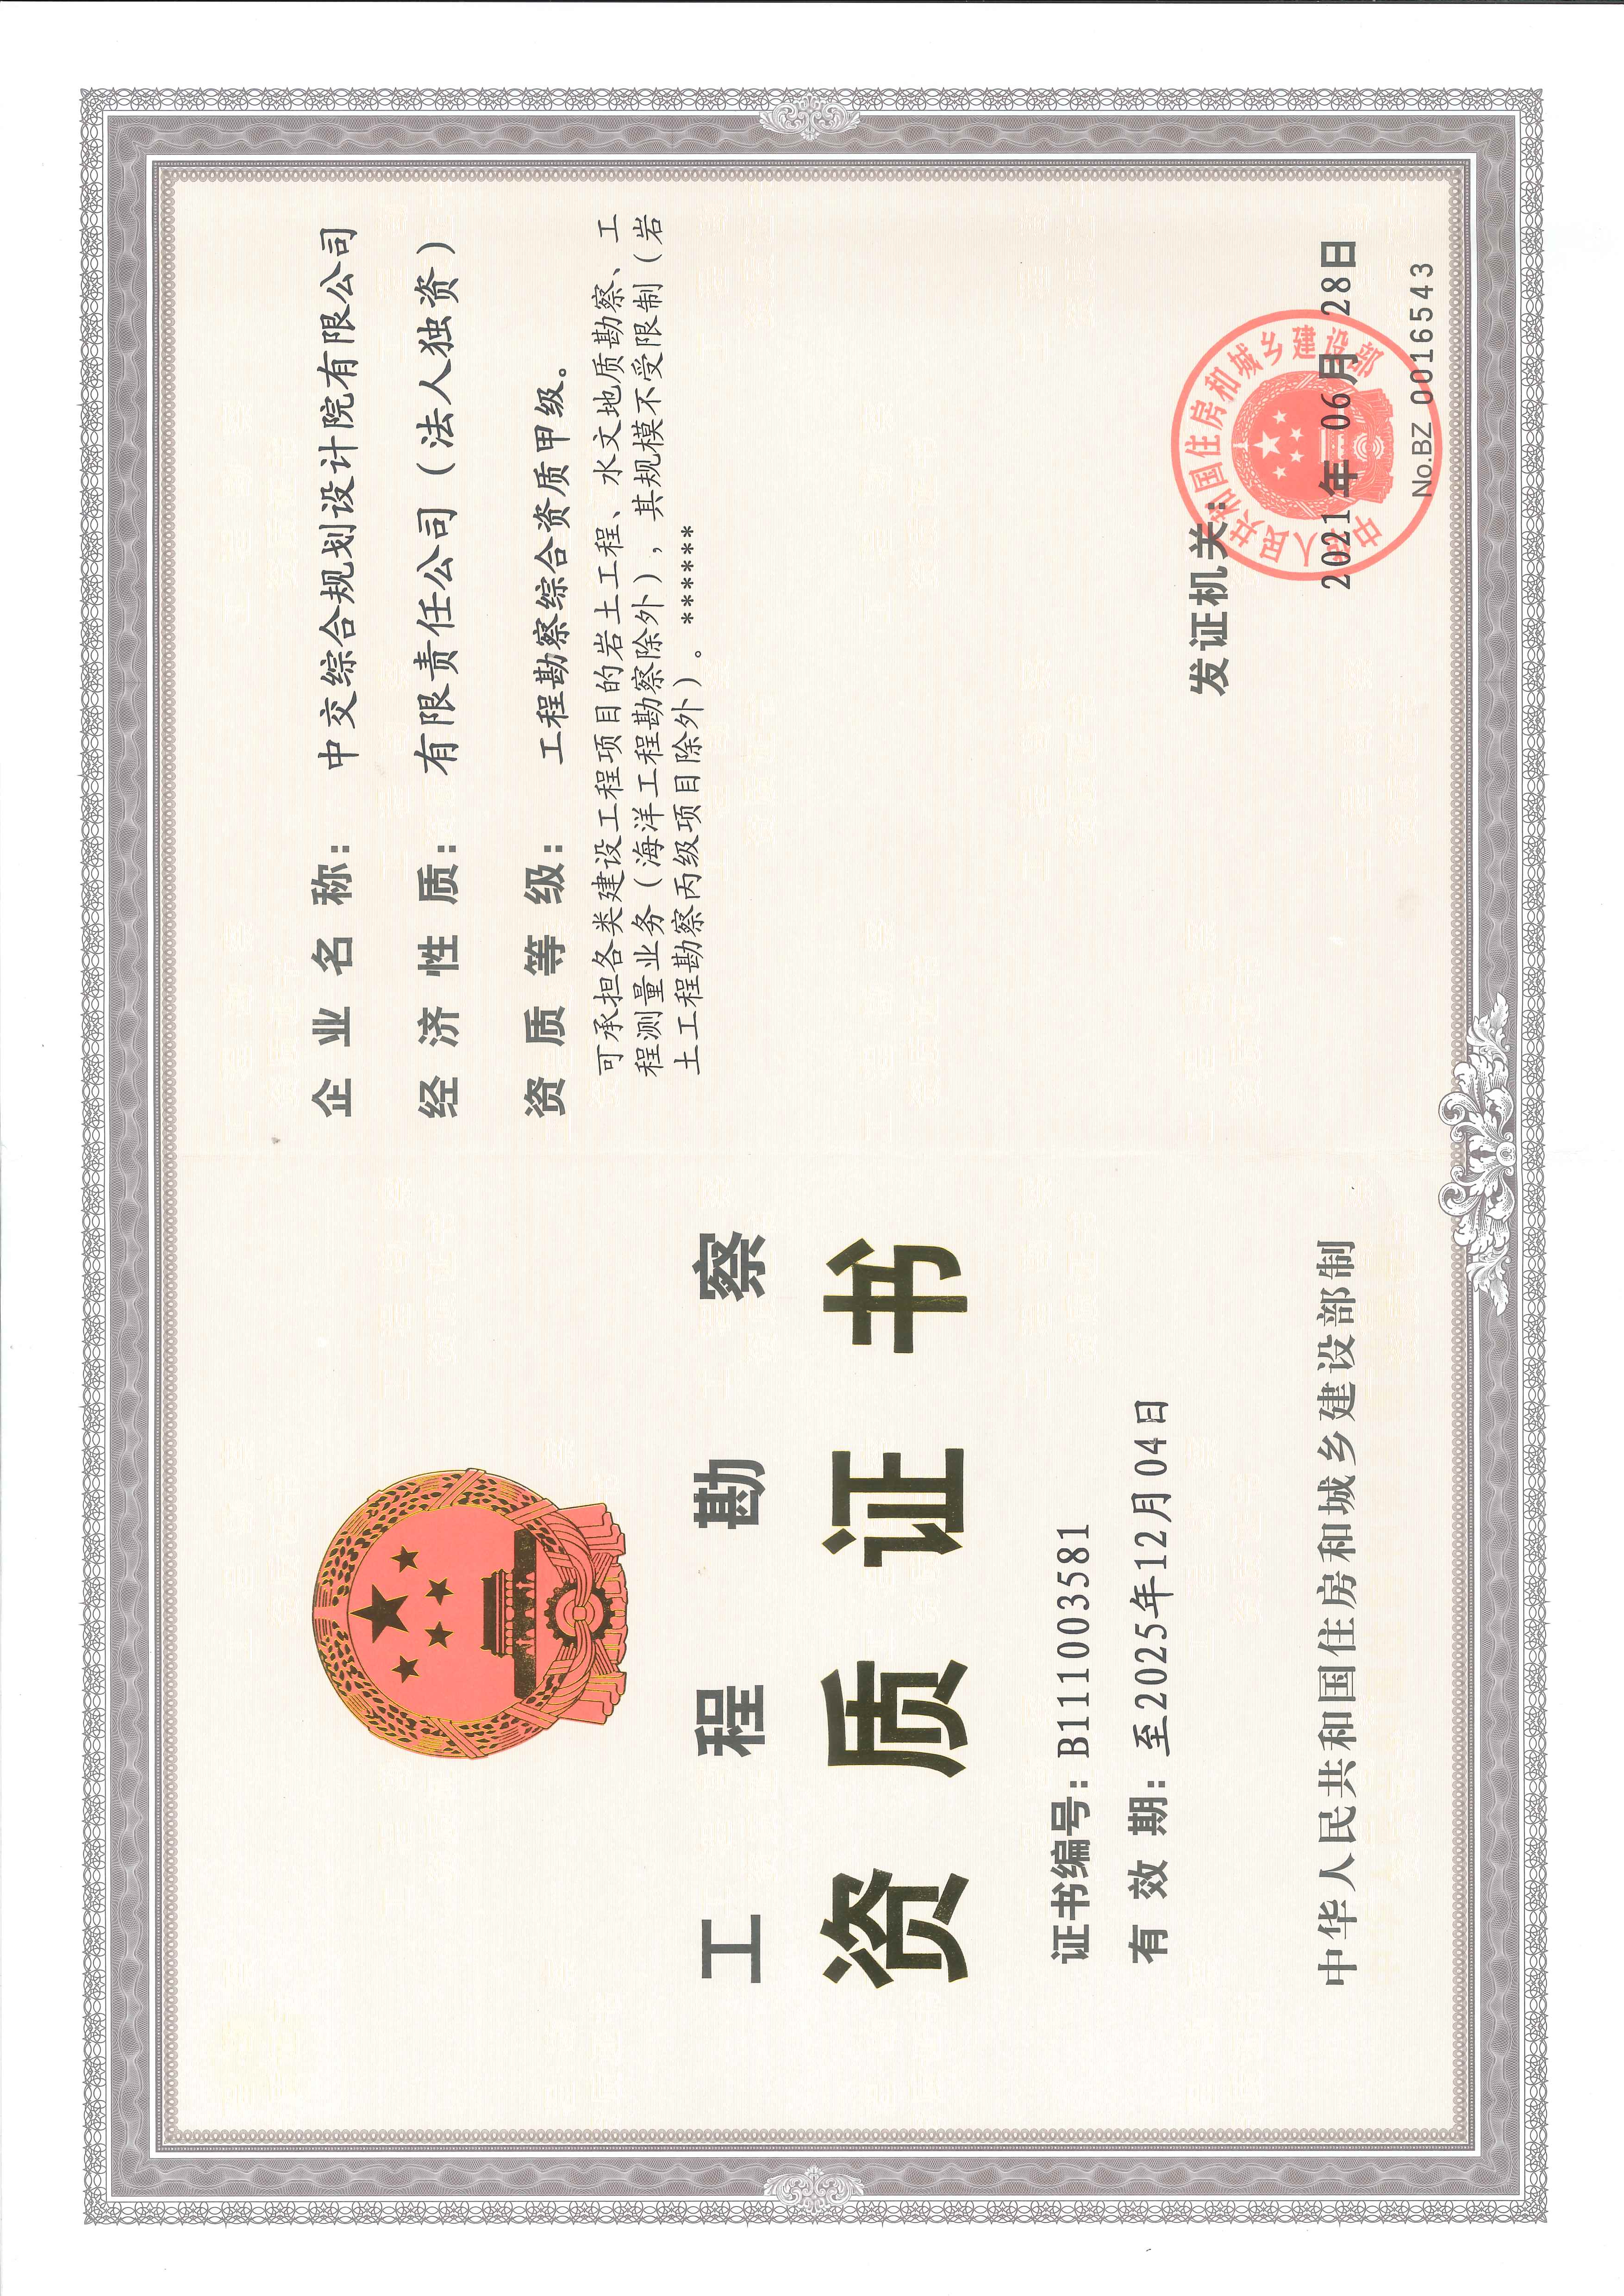 工程勘察
资质证书
证书编号：B111003581
有效期：至2025年12月04日
中华人民共和国住房和城乡建设部制
企业名称：中交综合规划设计院有限公司
经济性质：有限责任公司（法人独资）
资质等级：工程勘察综合资质甲级。
可承担各类建设工程项目的岩土工程、水文地质勘察、工
程测量业务（海洋工程勘察除外），其规模不受限制（岩
土工程勘察丙级项目除外）。*******
发证机关：
中华人民共和国住房和城乡建设部
2021年06月28日
No.BZ 0016543